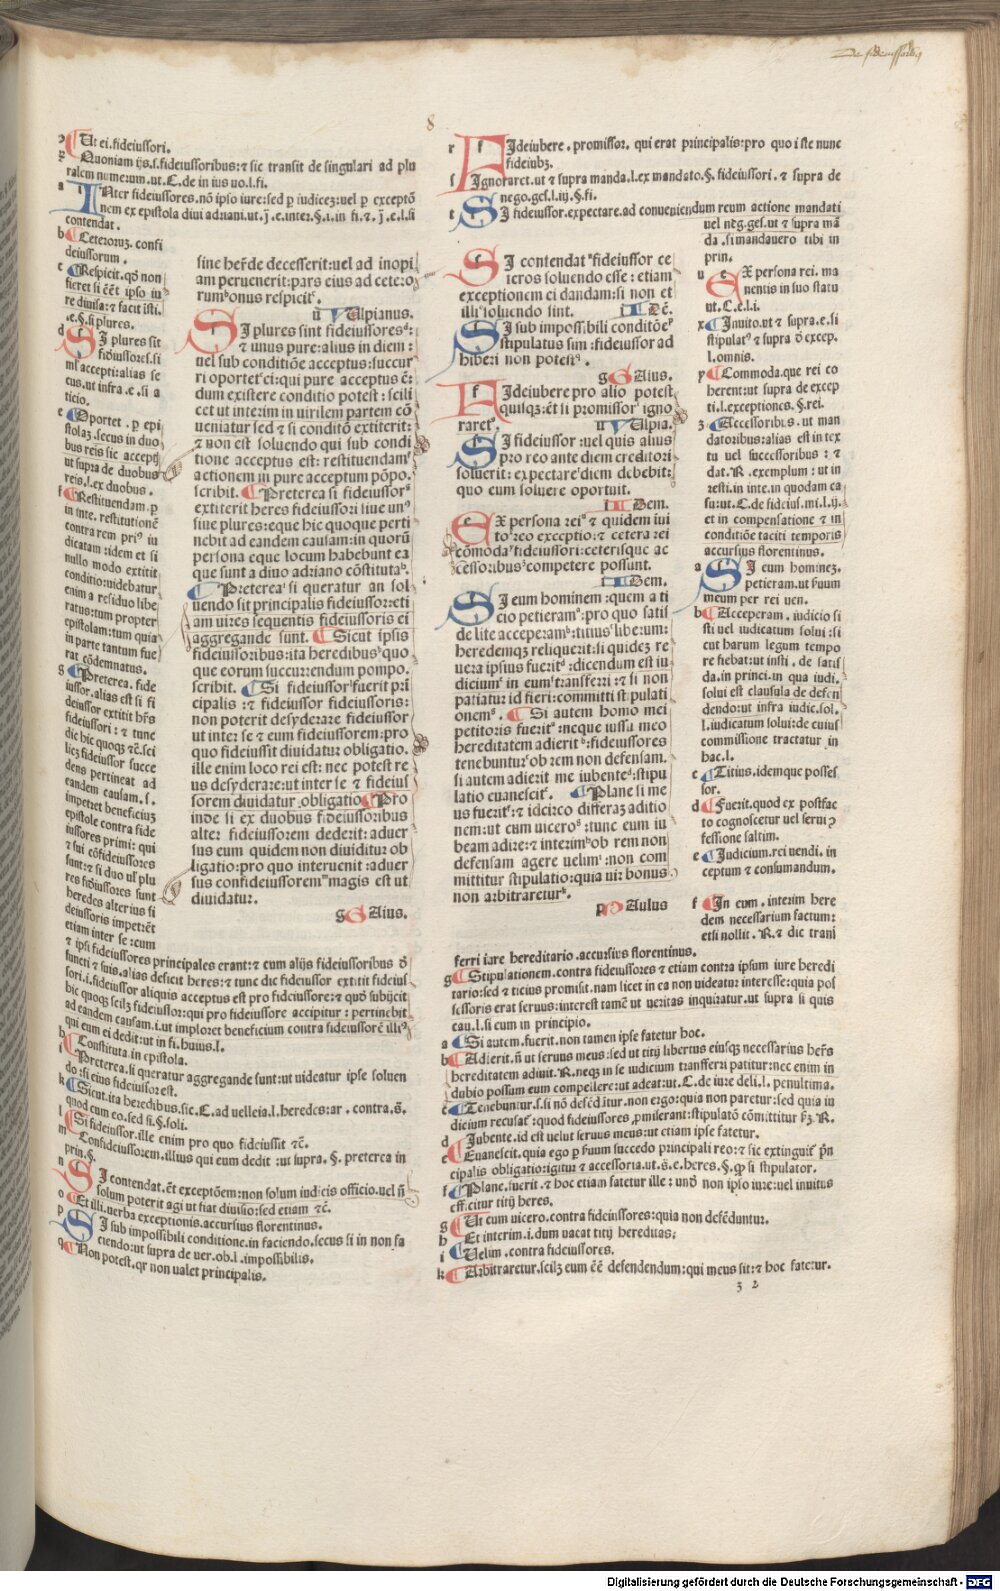 De fideiussorib9
8
Ut ei.fideiussori.
Quoniam ijs.s.fideiussoribus:⁊ sic transit de singulari ad plu
ralem numerum.ut.C.de in ius uo.l.fi.
INter fideiussores.nō ipso iure:sed ꝑ iudiceʒ:uel ꝑ exceptō
nem ex epistola diui adriani.ut.j.e.inter.§.i.in fi.⁊.j.e.l.si
contendat.
b Ceteroruʒ.confi
deiussorum.
c Respicit.qđ non
fieret si eēt ipso iu
re diuisa:⁊ facit isti.
e.§.si plures.
d SI plures sit
fidiussores.si
ml' accepti:alias se
cus.ut infra.e.si a
ticio.
e Oportet.ꝑ epi
stolaʒ.secus in duo
bus reis sic accepť
ut supra de duobus
reis.l.ex duobus.
f Restituendam.ꝑ
in inte. restitutionē
contra rem pri9 iu
dicatam:idem et si
nullo modo extitit
conditio:uidebatur
enim a residuo libe
ratus:tum propter
epistolam:tum quia
in parte tantum fue
rat cōdemnatus.
g Preterea.fide
iussor.alias est si fi
deiussor extitit hr̄s
fideiussori:⁊ tunc
dic hic quoqʒ ⁊c̄.sci
licʒ fideiussor succe
dens pertineat ad
eandem causam.s.
impetret beneficiuʒ
epistole contra fide
iussores primi: qui
⁊ sui cōfideiussores
sunt:⁊ si duo ul' plu
res fidiussores sunt
heredes alterius fi
deiussoris impetrēt
etiam inter se:cum
⁊ ipsi fideiussores principales erant:⁊ cum alijs fideiussoribus đ
functi ⁊ suis.alias deficit heres:⁊ tunc dic fideiussor extitit fideius
sori.i.fideiussor aliquis acceptus est pro fideiussore:⁊ quđ subijcit
hic quoqʒ scilʒ fideiussor:qui pro fideiussore accipitur: pertinebit
ad eandem causam.i.ut imploret beneficium contra fideiussorē illi9
qui eum ei dedit:ut in fi.huius.l.
h Constituta.in epistola.
i Preterea.si queratur aggregande sunt:ut uideatur ipse soluen
do:si eius fideiussor est.
k Sicut.ita heredibus.sic.C.ad uelleia.l.heredes:ar.contra.s̄.
quod cum eo.sed si.§.soli.
l Si fideiussor.ille enim pro quo fideiussit ⁊c̄.
m Confideiussorem.illius qui eum dedit :ut supra. §. preterea in
prin.§.
n SI contendat.ēt exceptōem:non solum iudicis officio.uel n̄
solum poterit agi ut fiat diuisio:sed etiam ⁊c̄.
o Et illi.uerba exceptionis.accursius florentinus.
p SI sub impossibili conditione.in faciendo.secus si in non fa
ciendo:ut supra de uer.ob.l.impossibilis.
q Non potest.qr non ualet principalis.
sine her̄de decesserit:uel ad inopi
am peruenerit:pars eius ad cetero
rumbonus respicit.
ū Ulpianus.
SI plures sint fideiussores:
⁊ unus pure:alius in diem:
uel sub conditiōe acceptus:succur
ri oportet ei:qui pure acceptus ē:
dum existere conditio potest : scili
cet ut interim in uirilem partem cō
ueniatur sed ⁊ si conditō extiterit:
⁊ non est soluendo qui sub condi
tione acceptus est: restituendam
actionem in pure acceptum pōpo.
scribit. Preterea si fideiussor
extiterit heres fideiussori siue un9
siue plures:eque hic quoque perti
nebit ad eandem causam:in quorū
persona eque locum habebunt ea
que sunt a diuo adriano cōstituta.
Preterea si queratur an sol
uendo sit principalis fideiussor:eti
am uires sequentis fideiussoris ei
aggregande sunt. Sicut ipsis
fideiussoribus:ita heredibus quo
que eorum succurrendum pompo.
scribit. Si fideiussor fuerit pri
cipalis :⁊ fideiussor fideiussoris:
non poterit desyderare fideiussor
ut inter se ⁊ eum fideiussorem:pro
quo fideiussit diuidatur obligatio.
ille enim loco rei est: nec potest re
us desydare:ut inter se ⁊ fideius
sorem diuidatur obligatio Pro
inde si ex duobus fideiussoribus
alter fideiussorem dederit: aduer
sus eum quidem non diuiditur ob
ligatio:pro quo interuenit :aduer
sus confideiussorem magis est ut
diuidatur.
g GAius.
r FIdeiubere.promissor. qui erat principalis:pro quo iste nunc
fideiubʒ.
s Ignoraret.ut ⁊ supra manda.l.ex mandato.§.fideiussori.⁊ supra de
nego.ges.l.iij.§.fi.
t SI fideiussor.expectare.ad conueniendum reum actione mandati
uel neg.ges.ut ⁊ supra mā
da.si mandauero tibi in
prin.
u EX persona rei. ma
nentis in suo statu
ut.C.e.l.i.
x Inuito.ut ⁊ supra.e.si
stipulat9 ⁊ supra đ excep.
l.omnis.
y Commoda.que rei co
herent:ut supra de excep
ti.l.exceptiones.§.rei.
z Accessoribus.ut man
datoribus:alias est in tex
tu uel successoribus : ⁊
dat.R.exemplum : ut in
resti.in inte.in quodam ca
su:ut.C.de fideius.mi.l.ij.
et in compensatione ⁊ in
conditiōe taciti temporis
accursius florentinus.
a SI eum homineʒ.
petieram.ut suum
meum per rei uen.
b Acceperam.iudicio si
sti uel iudicatum solui:si
cut harum legum tempo
re fiebat:ut insti. de satis
da.in princi.in qua iudi.
solui est clausula de defen
dendo:ut infra iudic.sol.
l.iudicatum solui:de cuius
commissione tractatur in
hac.l.
c Titius.idemque posses
sor.
d Fuerit.quod ex postfac
to cognoscetur uel serui p̄
fessione saltim.
e Iudicium.rei uendi.in
ceptum ⁊ consumandum.
f In eum.interim here
dem necessarium factum:
etsi nollit.R.⁊ dic trans
ferri iure hereditario.accursius florentinus.
SI contendat fideiussor ce
teros soluendo esse:etiam
exceptionem ei dandam:si non et
illi soluendo sint. i IDē.
SI sub imposs.bili conditōe
stipulatus sim:fideiussor ad
hiberi non potest.
g GAius.
FIdeiubere pro alio potest
quisqʒ:ēt si promissor igno
raret. u Ulpia.
SI fideiussor:uel quis alius
pro reo ante diem creditori
soluerit:expectare diem debebit:
quo eum soluere oportuit.
i IDem.
EX persona rei ⁊ quidem iui
to reo exceptio:⁊ cetera rei
cōmoda fideiussori:ceterisque ac
cessoribus competere possunt.
i IDem.
SI eum hominem:quem a ti
cio petieram:pro quo satis
de lite acceperam:titius liberum:
heredemqʒ reliquerit:si quideʒ re
uera ipsius fuerit:dicendum est iu
dicium in eum transferri:⁊ si non
patiatur id fieri:committi stipulati
onem. Si autem homo mei
petitoris fuerit:neque iussu meo
hereditatem adierit:fideiussores
tenebuntur ob rem non defensam.
si autem adierit me iubente:stipu
latio euanescit. Plane si me
us fuerit:⁊ idcirco differaʒ aditio
nem:ut cum uicero:tunc eum iu
beam adire:⁊ interim ob rem non
defensam agere uelim:non com
mittitur stipulatio:quia uir bonus
non arbitraretur.
p PAulus
g Stipulationem.contra fideiussores ⁊ etiam contra ipsum iure heredi
tario:sed ⁊ ticius promisit.nam licet in ea non uideatur interesse:quia pos
sessoris erat seruus:interest tamē ut ueritas inquiratur.ut supra si quis
cau.l.si eum in principio.
a Si autem.fuerit.non tamen ipse fatetur hoc.
b Adierit.n̄ ut seruus meus:sed ut titij libertus eiusqʒ necessarius her̄s
hereditatem adiuit.R.neqʒ in se iudicium transferri patitur:nec enim in
dubio possum eum compellere:ut adeat:ut.C.de iure deli.l. penultima.
c Tenebuntur.s.si nō defēditur.non ergo:quia non paretur:sed quia iu
dicium recusat:quod fideiussores ꝓmiserant:stipulatō cōmittitur sʒ.R.
d Iubente.id est uelut seruus meus:ut etiam ipse fatetur.
e Euanescit.quia ego ꝑ suum succedo principali reo:⁊ sic extinguit' pn̄
cipalis obligatio:igitur ⁊ accessoria.ut.s̄.e.heres.§.ꝙ si stipulator.
f Plane.fuerit.⁊ hoc etiam fatetur ille: unđ non ipso iure:uel inuitus
efficitur titij heres.
g Ut cum uicero.contra fideiussores:quia non defēduntur.
h Et interim.i.dum uacat titij hereditas;
i Uelim.contra fideiussores.
k Arbitraretur.scilʒ eum eē defendendum:qui meus sit:⁊ hoc fatetur.
3 2
Digitalisierung gefördert durch die Deutsche Forschungsgemeinschaft - DFG